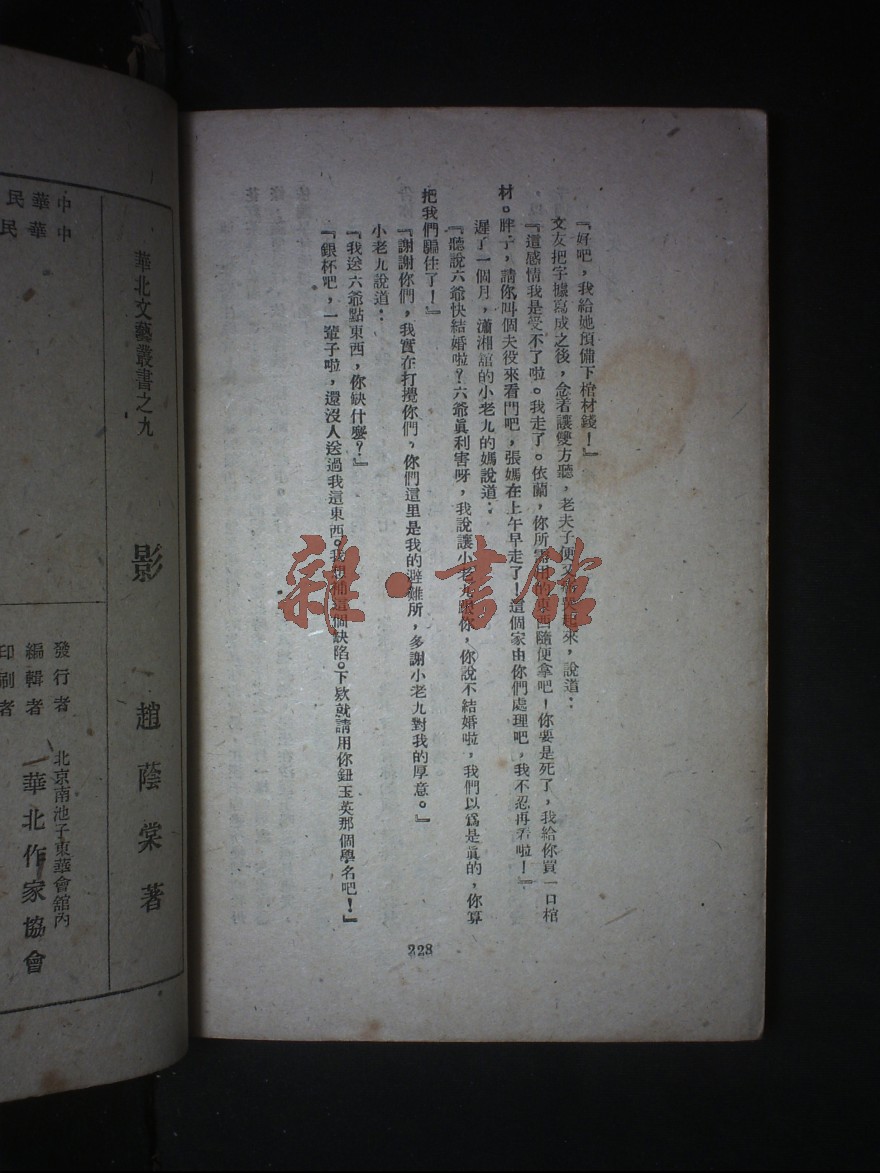 『好吧，我給她預備下棺材錢！』
文友把字據寫成之後，念着讓雙方聽，老夫子便又來，說道：
『這感情我是受不了啦。我走了。依蘭，你所需用的東西隨便拿吧！你要是死了，我給你買一口棺
材。胖子，請你叫個夫役來看門吧，張媽在上午早走了！這個家由你們處理吧，我不忍再看啦！』
遲了一個月，瀟湘舘的小老九的媽說道：
『聽說六爺快結婚啦？六爺眞利害呀，我說讓小老九跟你，你說不結婚啦，我們以爲是眞的，你算
把我們騙住了！』
『謝謝你們，我實在打攪你們，你們這里是我的避難所，多謝小老九對我的厚意。』
小老九說道：
『我送六爺點東西，你缺什麼？』
『銀杯吧，一輩子啦，還沒人送過我這東西。我想補這個缺陷。下欵就請用你鈕玉英那個學名吧！』
228
雜·書館
中華民
中華民
華北文藝叢書之九
影
趙蔭棠著
發行者
編輯者
印刷者
北京南池子東華會舘內
華北作家協會